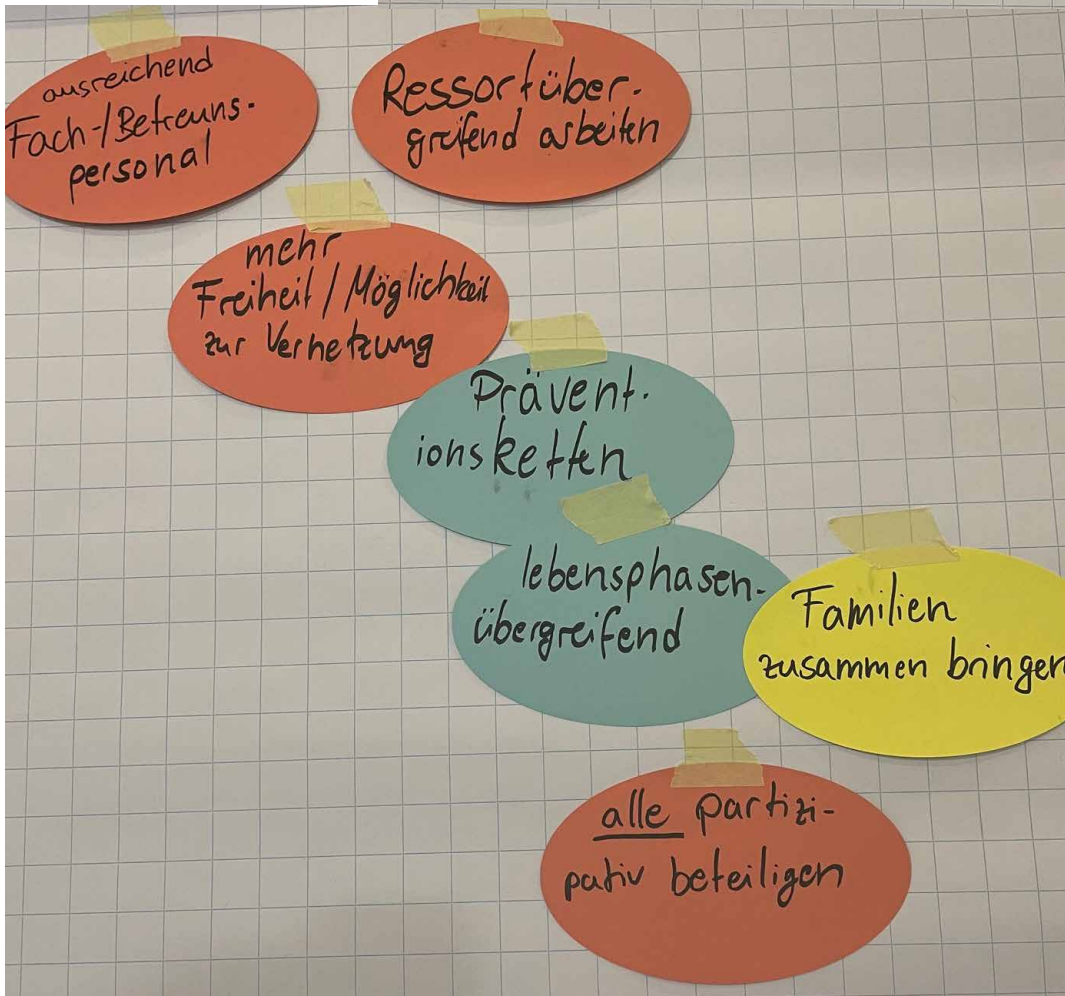 ausreichend
Fach-/Betreuns-
personal
Ressortüber-
greifend arbeiten
mehr
Freiheit / Möglichkeit
zur Vernetzung
Prävent-
ionsketten
lebensphasen-
übergreifend
Familien
zusammen bringen
alle partizi-
pativ beteiligen